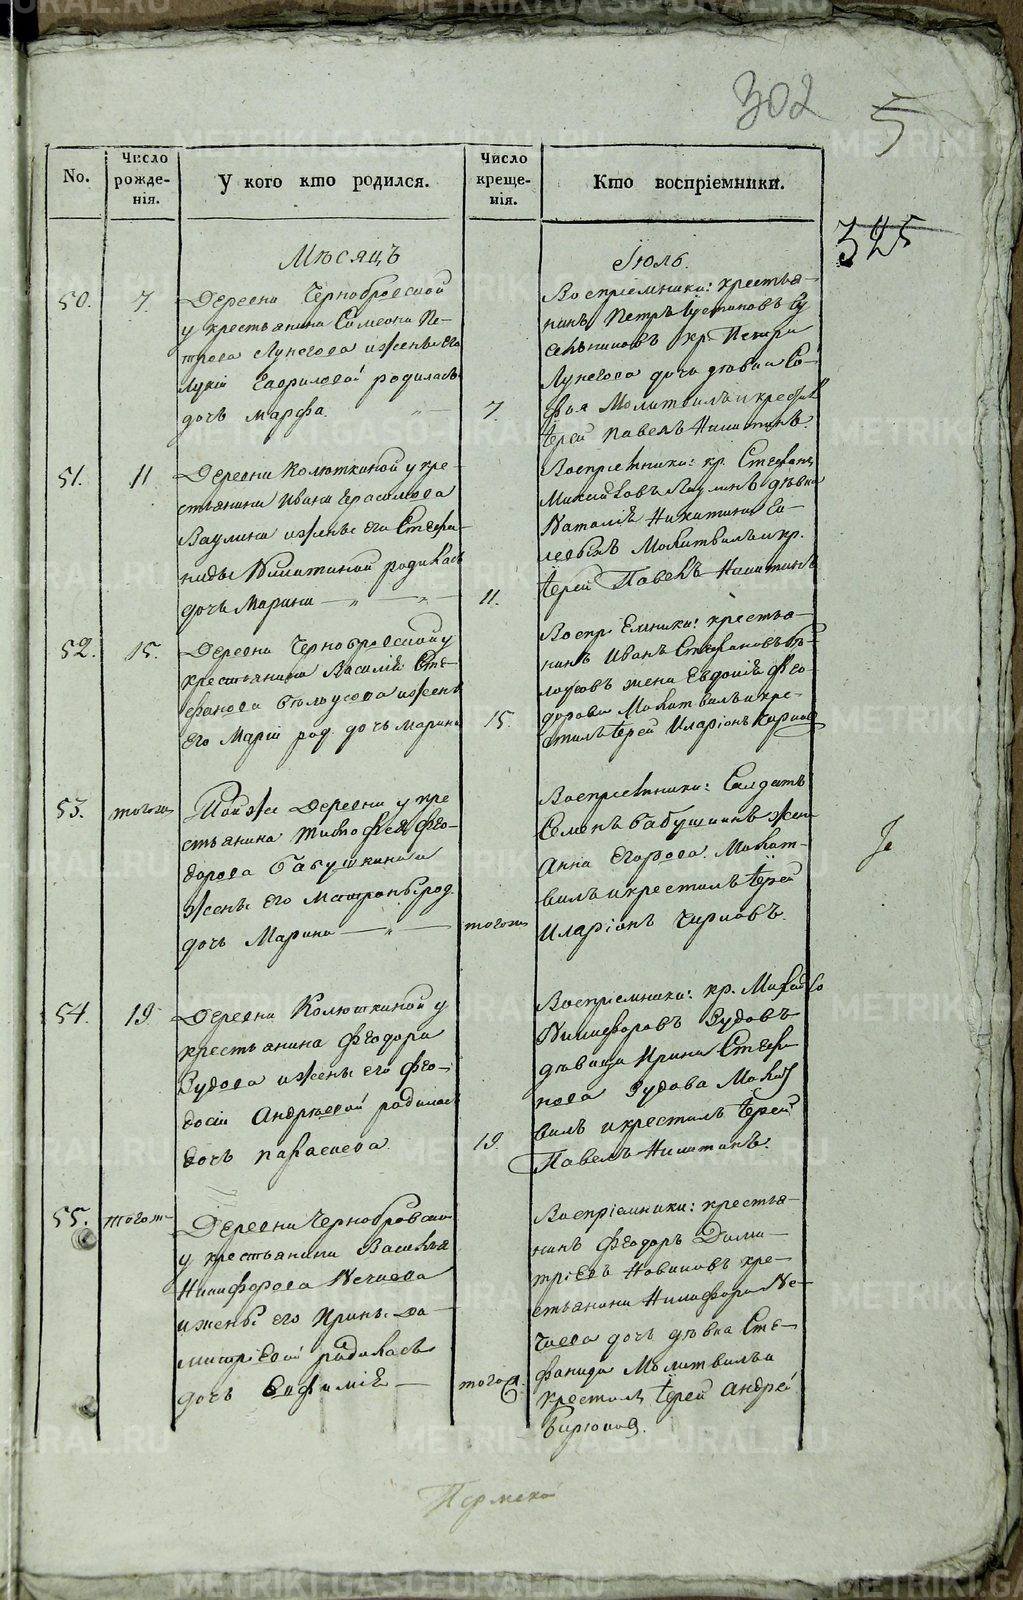 302
5
325
No.
Число рожде-нія.
У кого кто родился.
Число креще-нія.
Кто воспріемники.
Мѣсяцъ
Іюль.
50.
7.
Деревни Чернобровской
у крестьянина Симеона Пе-
трова Лунегова и жены его
Гавриловой родилась
дочь Марфа.
7.
Воспріемники: крестья-
нинъ Петръ
кр. Петра
Лунегова дочь девка Со-
фья Молитвилъ и крестилъ
Іерей Павелъ Никитинъ.
51.
11
Деревни Колюткиной у кре-
стьянина Ивана Герасимова
Ваулина и жены его Стефа-
ниды Никитиной родилась
дочь Марина
11.
Воспріемники: кр. Стефанъ
Ваулинъ девка
Наталія Никитина
Молитвилъ и кр.
Іерей Павелъ Никитинъ
52.
15.
Деревни Чернобровской у
крестьянина Василія Сте-
фанова Бѣлоусова и жены
его Маріи род. дочь Марина
15.
Воспріемники: крестья-
нинъ Иванъ Стефановъ Бѣ-
лоусовъ жена Евдокія Ѳео-
дорова Молитвилъ и кре-
стилъ Іерей Иларіонъ
53.
тогожъ
Той же Деревни у кре
стьянина Тимофея Ѳео-
дорова Бабушкина и
жены его Матроны род.
дочь Марина
тогожъ
Воспріемники: Солдатъ
Семенъ Бабушкинъ жена
Анна Егорова. Молит-
вилъ и крестилъ Іерей
Иларіонъ
54.
19
Деревни Колюткиной у
крестьянина Ѳеодора
Зудова и жены его Ѳео-
досіи Андреевой родилась
дочь Параскева.
19.
Воспріемники: кр. Михайло
Никифоровъ Зудовъ
девица Ирина Стефа
нова Зудова Молит
вилъ и крестилъ Іерей
Павелъ Никитинъ.
55.
тогожъ
Деревни Чернобровской
у крестьянина Василья
Никифорова Нечаева
и жены его Ирины Ди-
митріевой родилась
дочь Евфимія
тогожъ
Воспріемники: крестья-
нинъ Ѳеодоръ Дими-
тріевъ Новиковъ кре-
стьянина Никифора Не-
чаева дочь девка Сте-
фанида Молитвилъ и
крестилъ Іерей Андрей
Бирюковъ.
Пермской
METRIKI.GASO-URAL.RU